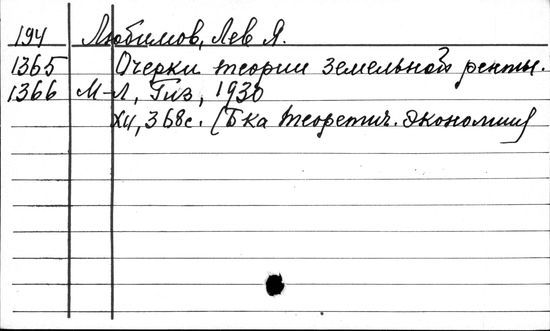 194 Любимов, Лев Я.
1365 Очерки теории земельной ренты.
1366 М-Л, Гиз, 1930
XII, 368с. [Б-ка теоретич. экономии]